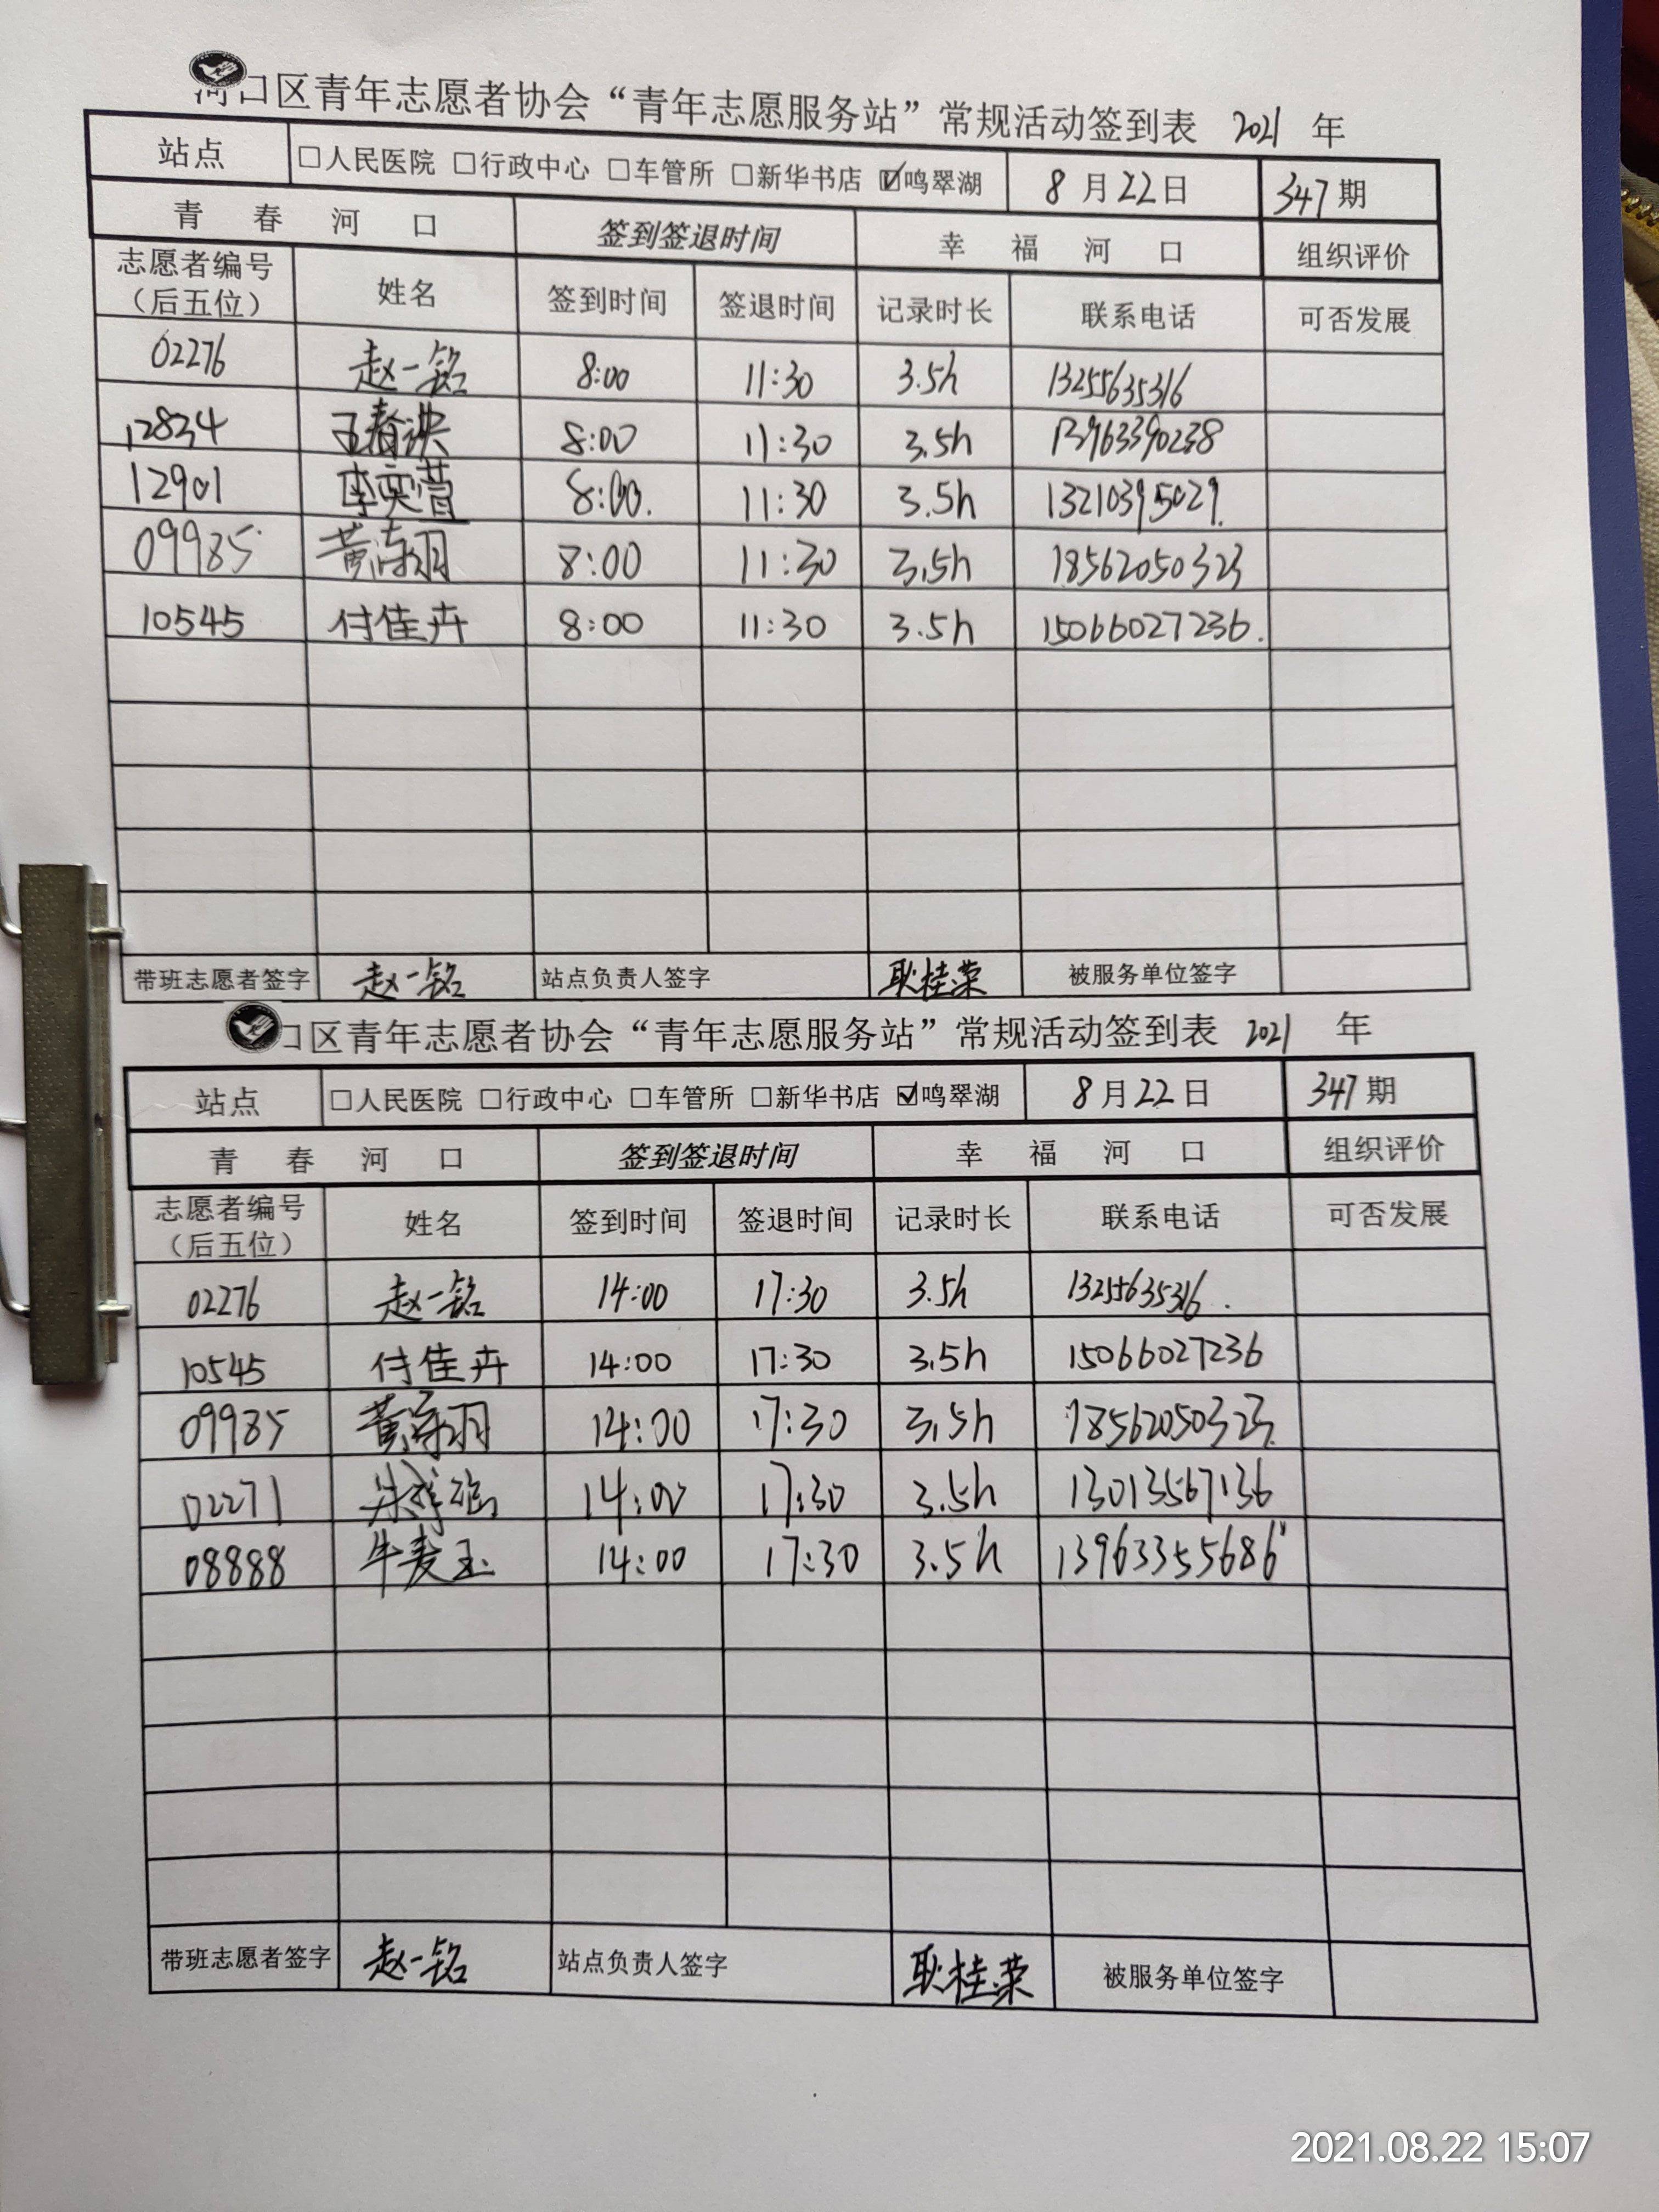 河口区青年志愿者协会“青年志愿服务站”常规活动签到表 2021 年
站点 □人民医院 □行政中心 □车管所 □新华书店 ☑鸣翠湖 8月22日 347期
青春河口 签到签退时间 幸福河口 组织评价
志愿者编号（后五位） 姓名 签到时间 签退时间 记录时长 联系电话 可否发展
02276 赵一铭 8:00 11:30 3.5h 13255635316
12834 8:00 11:30 3.5h 13963390238
12901 李奕萱 8:00. 11:30 3.5h 13210395029.
09985 8:00 11:30 3.5h 18562050323
10545 付佳卉 8:00 11:30 3.5h 15066027236.
带班志愿者签字 赵一铭 站点负责人签字 耿桂荣 被服务单位签字
口区青年志愿者协会“青年志愿服务站”常规活动签到表 2021 年
站点 □人民医院 □行政中心 □车管所 □新华书店 ☑鸣翠湖 8月22日 347期
青春河口 签到签退时间 幸福河口 组织评价
志愿者编号（后五位） 姓名 签到时间 签退时间 记录时长 联系电话 可否发展
02276 赵一铭 14:00 17:30 3.5h 13255635316.
10545 付佳卉 14:00 17:30 3.5h 15066027236
09985 14:00 17:30 3.5h 18562050323.
02271 14:00 17:30 3.5h 13013567136
08888 牛麦玉 14:00 17:30 3.5h 13963355686
带班志愿者签字 赵一铭 站点负责人签字 耿桂荣 被服务单位签字
2021.08.22 15:07